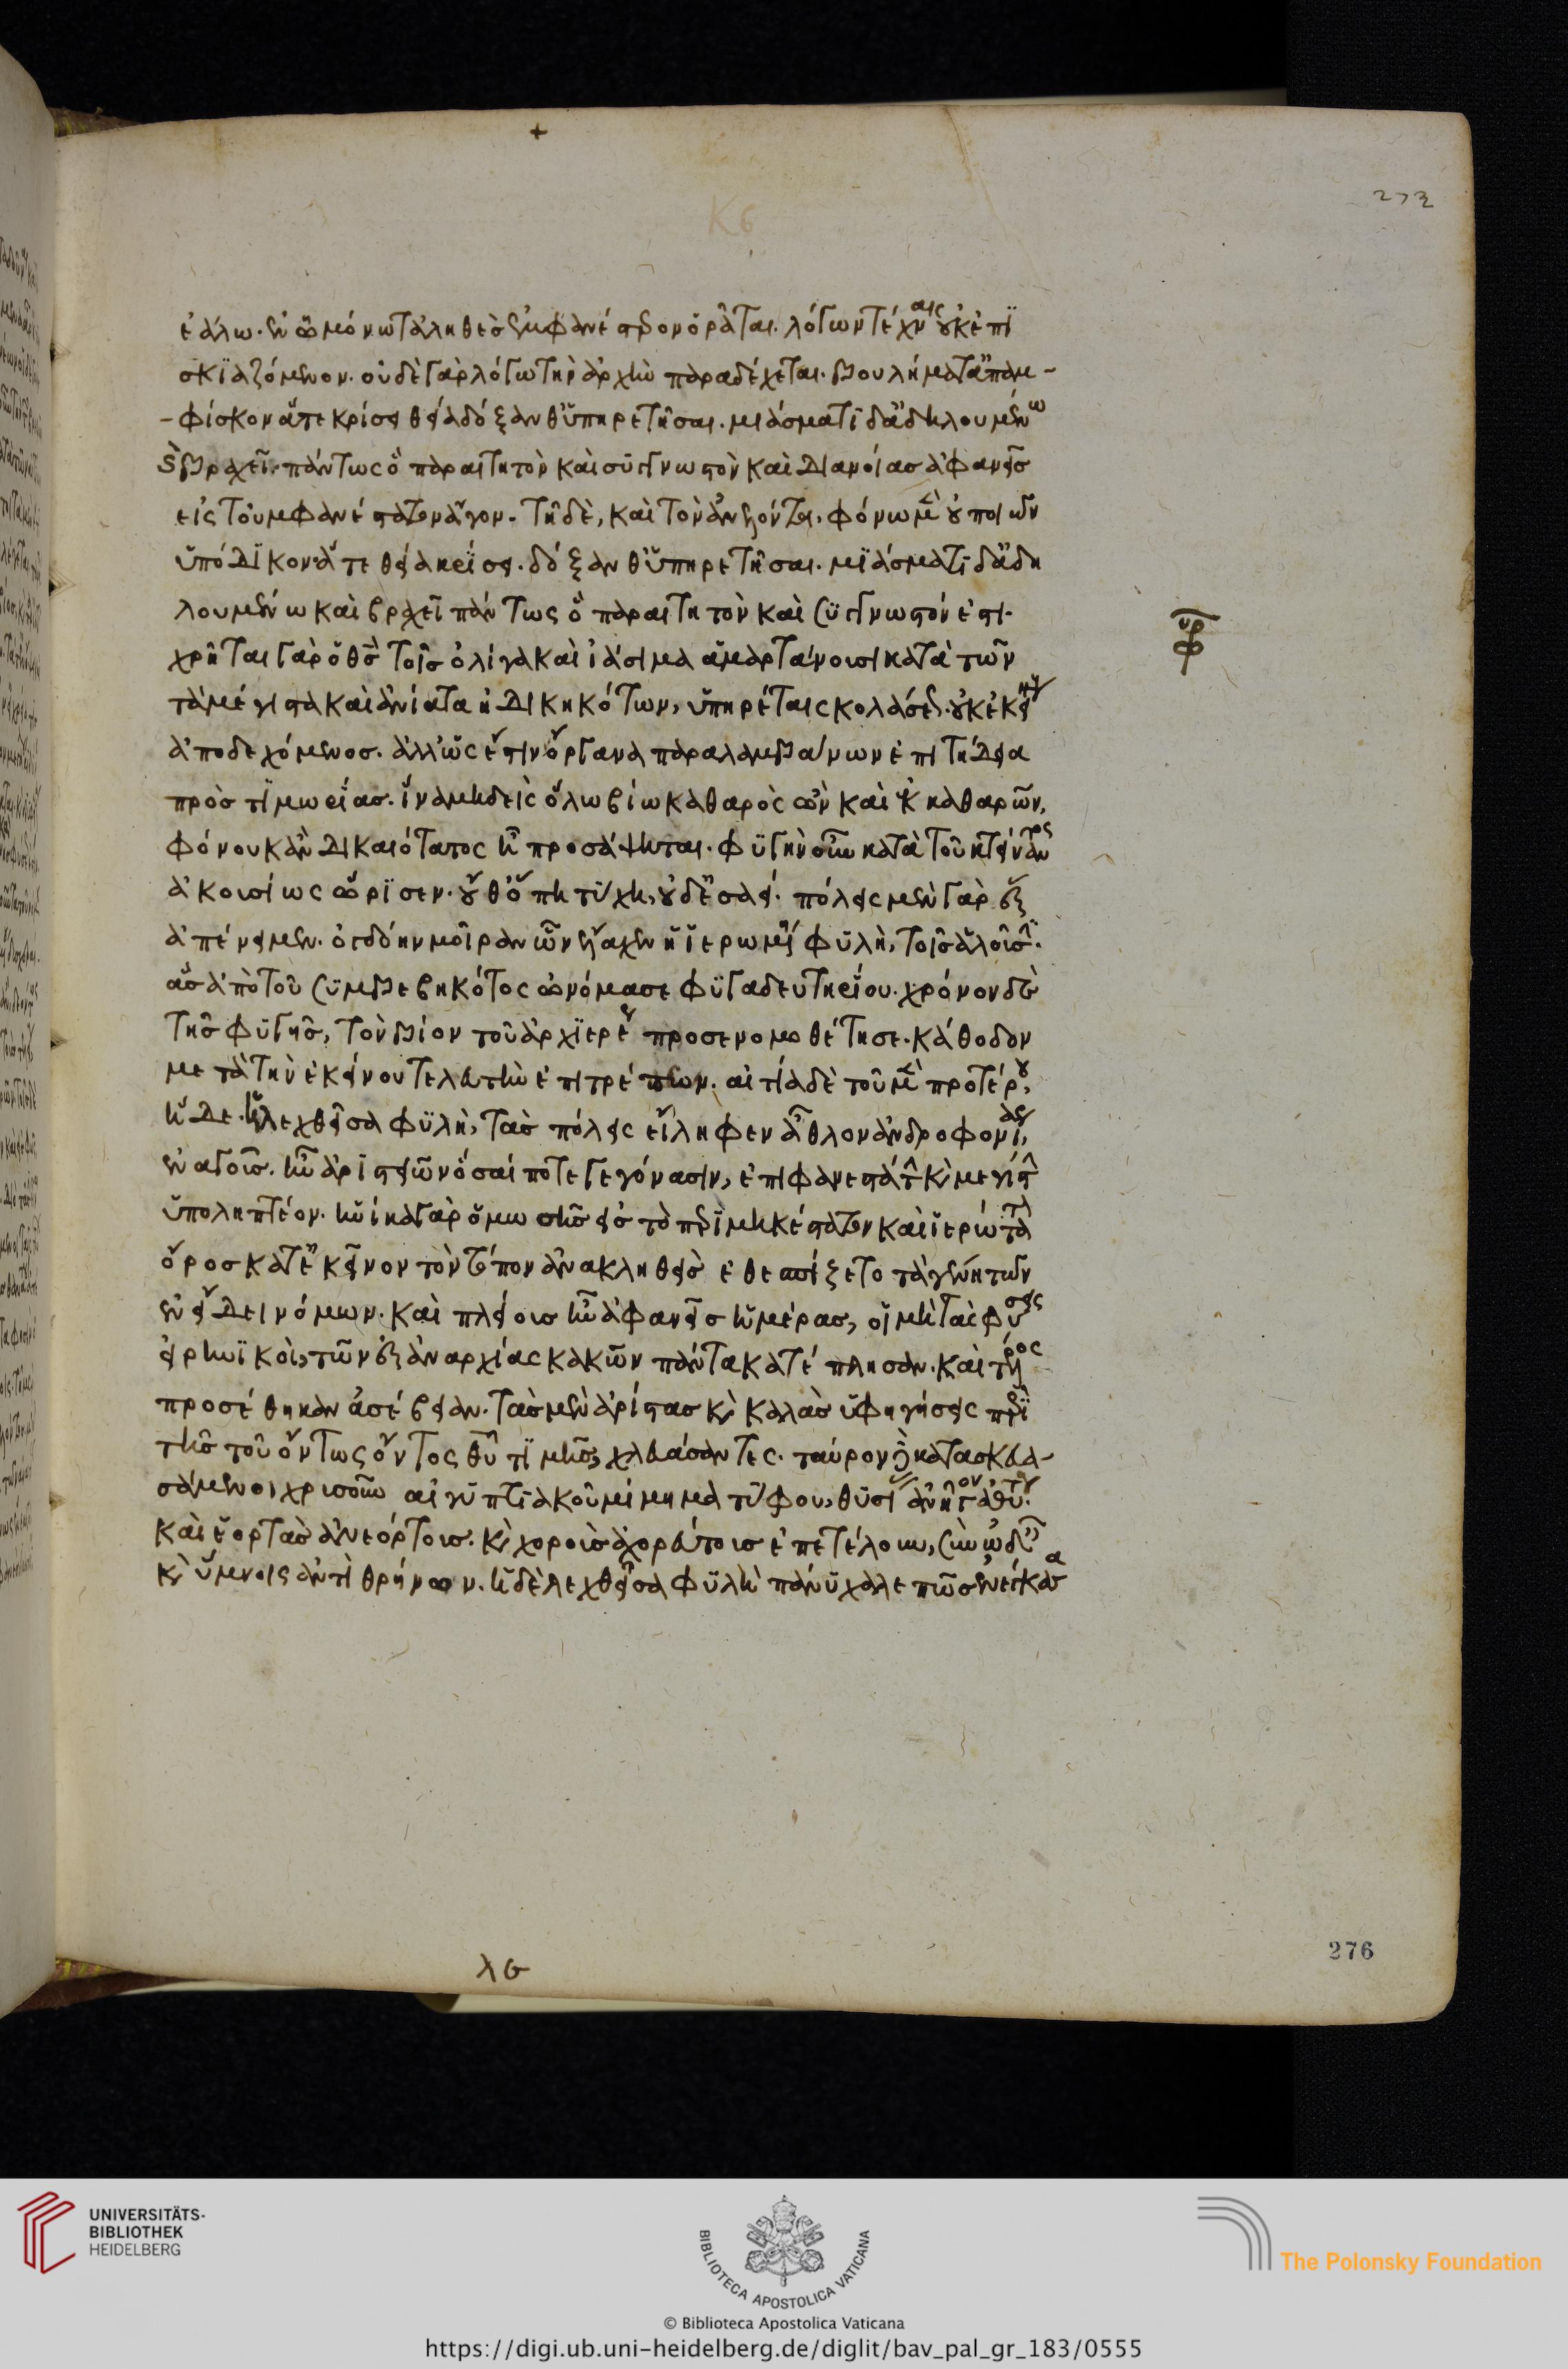 ἑάλω· ἐν ᾧ μόνω τἀληθὲς ἐμφανέστερον ὁρᾶται. λόγων τέχναις οὐκ ἐπϊ
σκϊαζόμενον. οὐδὲ γὰρ λόγω τὴν ἀρχὴν παραδέχεται. βουλήματα παμ-
φίσκον ἅτε κρίσει θείᾳ δόξαν θ' ὑπηρετῆσαι. μιάσματϊ δ' ἀδηλουμένω
βραχεῖ· πάντως ὃ παραιτητὸν καὶ συγγνωστὸν καὶ διανοίας ἀφανεῖς
εἰς τοὐμφανέστατον ἄγον. τῆδὲ, καὶ τὸν ἀνελόντα. φόνω μὲν οὐ ποιῶν
ὑπόδϊκον· ἅτε θείᾳ κρίσει. δόξαν θ' ὑπηρετῆσαι. μϊάσματϊ δ' ἀδη
λουμένω καὶ βραχεῖ πάντως ὃ παραιτητὸν καὶ συγγνωστόν ἐστι·
χρῆται γὰρ ὁ θεὸς τοῖς ὀλίγα καὶ ἰάσιμα ἁμαρτάνουσι κατὰ τῶν
τὰ μέγιστα καὶ ἀνίατα ἠδικηκότων, ὑπηρέταις κολάσεως. οὐκ ἐκείνους
ἀποδεχόμενος. ἀλλ' ὥς ἐστιν ὄργανα παραλαμβάνων ἐπιτήδεια
πρὸς τϊμωρίας. ἵνα μηδεὶς ὅλω βίω καθαρὸς ὢν καὶ ἐκ καθαρῶν,
φόνου κἂν δικαιότατος ἦ προσάψηται. φϋγὴν οὖν κατὰ τοῦ κτείναντος
ἀκουσίως ὥρϊσεν. οὔθ' ὅπη τύχη, οὐδ' εἰσαεί. πόλεις μὲν γὰρ ἓξ
ἀπένειμεν. ὀγδόην μοῖραν ὧν ἔλαχεν ἡ ἱερωμένη φϋλὴ, τοῖς ἁλοῦσιν.
ἃς ἀπὸ τοῦ συμβεβηκότος ὠνόμασε φϋγαδευτηρίου. χρόνον δὲ
τῆς φϋγῆς, τὸν βίον τοῦ ἀρχϊερέως προσενομοθέτησε. κάθοδον
μετὰ τὴν ἐκείνου τελευτὴν ἐπιτρέπων. αἰτία δὲ τοῦ μὲν προτέρου,
ἥδε. ἡ λεχθεῖσα φϋλὴ, τὰς πόλεις εἴληφεν ἆθλον ἀνδροφονίας,
εὐαγοῦς. ἣν ἀρϊστειῶν ὅσαί ποτε γεγόνασιν, ἐπιφανεστάτην καὶ μεγίστην
ὑποληπτέον. ἡνίκα γὰρ ὁ μωσῆς εἰς τὸ περϊμηκέστατον καὶ ἱερώτατον
ὄρος κατ' ἐκεῖνον τὸν τόπον ἀνακληθεὶς ἐθεσπίζετο τὰ γένη τῶν
ἐν εἴδει νόμων. καὶ πλείους ἦν ἀφανὴς ἡμέρας, οἱ μὴ τὰς φύσεις
εἰρηνϊκοὶ, τῶν ἐξ ἀναρχίας κακῶν πάντα κατέπλησαν. καὶ τέλος
προσέθηκαν ἀσέβειαν. τὰς μὲν ἀρίστας καὶ καλὰς ὑφηγήσεις περὶ
τῆς τοῦ ὄντως ὄντος θεοῦ τϊμῆς, χλευάσαντες. ταῦρον δὲ κατασκευα-
σάμενοι χρυσοῦν αἰγϋπτϊακοῦ μίμημα τύφου, θυσίας ἀνῆγον ἀθύτους.
καὶ ἑορτὰς ἀνεόρτους. καὶ χοροὺς ἀχορεύτους ἐπετέλουν, σὺν ὠδαῖς
καὶ ὕμνοις ἀντὶ θρήνων. ἡ δὲ λεχθεῖσα φϋλὴ πάνϋ χαλεπῶς ἐνεγκοῦσα
λϛ
276
UNIVERSITÄTS-
BIBLIOTHEK
HEIDELBERG
BIBLIOTECA APOSTOLICA VATICANA
The Polonsky Foundation
© Biblioteca Apostolica Vaticana
https://digi.ub.uni-heidelberg.de/diglit/bav_pal_gr_183/0555